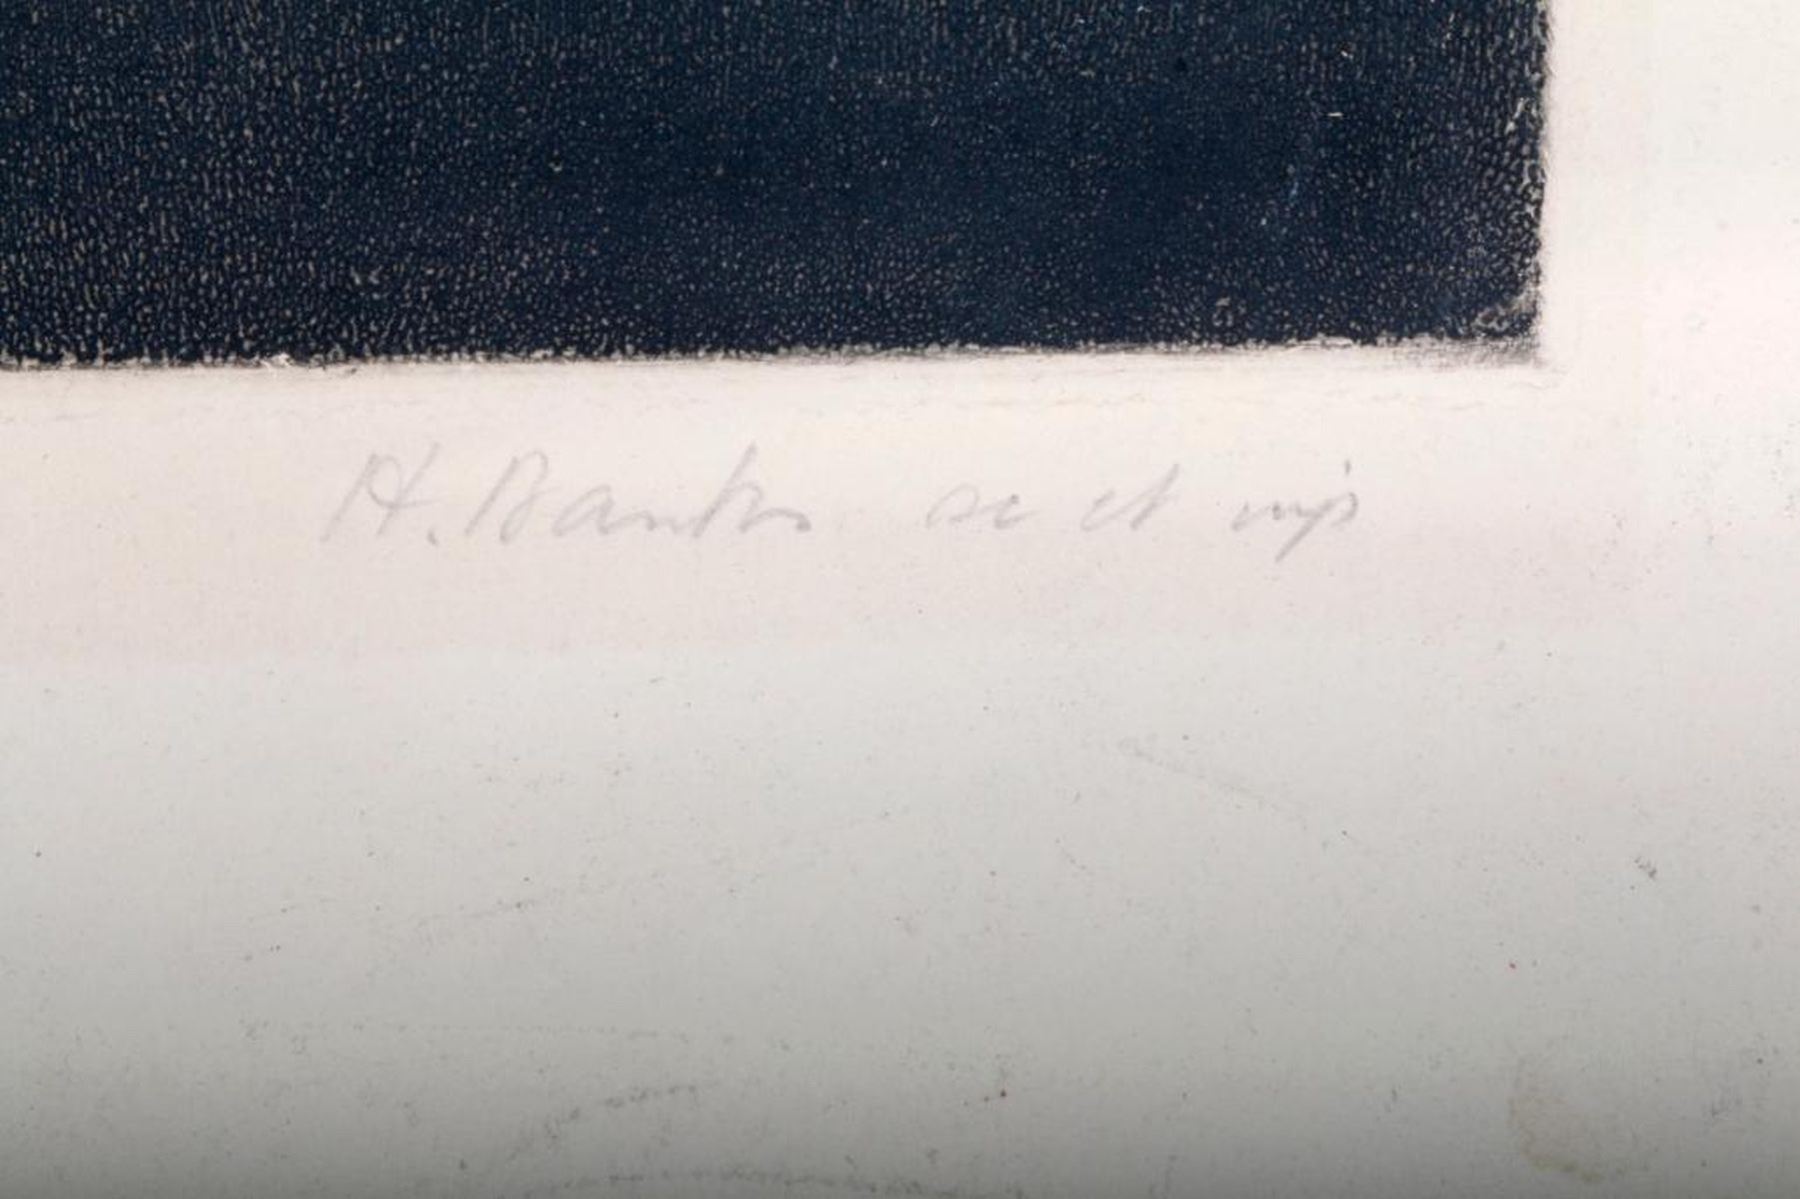 H. Banks sc et imp